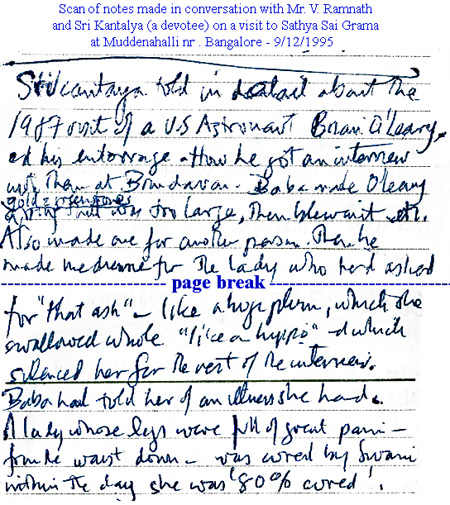 Scan of notes made in conversation with Mr. V. Ramnath
and Sri Kantalya (a devotee) on a visit to Sathya Sai Grama
at Muddenahalli nr . Bangalore - 9/12/1995
told in detail about the
1987 visit of a U.S Astronaut Brian O'Leary,
ed his entourage - How he got an interview
with them at Brindavan. Baba made O'Leary
a ring that was too large, then blew on it etc.
Also made one for another person. Then he
made medicine for the lady who had asked
page break
for "that ash" - like a huge plum, which she
swallowed whole "like a hippo" - which
silenced her for the rest of the interview.
Baba had told her of an illness she had.
A lady whose legs were full of great pain -
from the waist down - was cured by Swami
within the day she was '80% cured'.